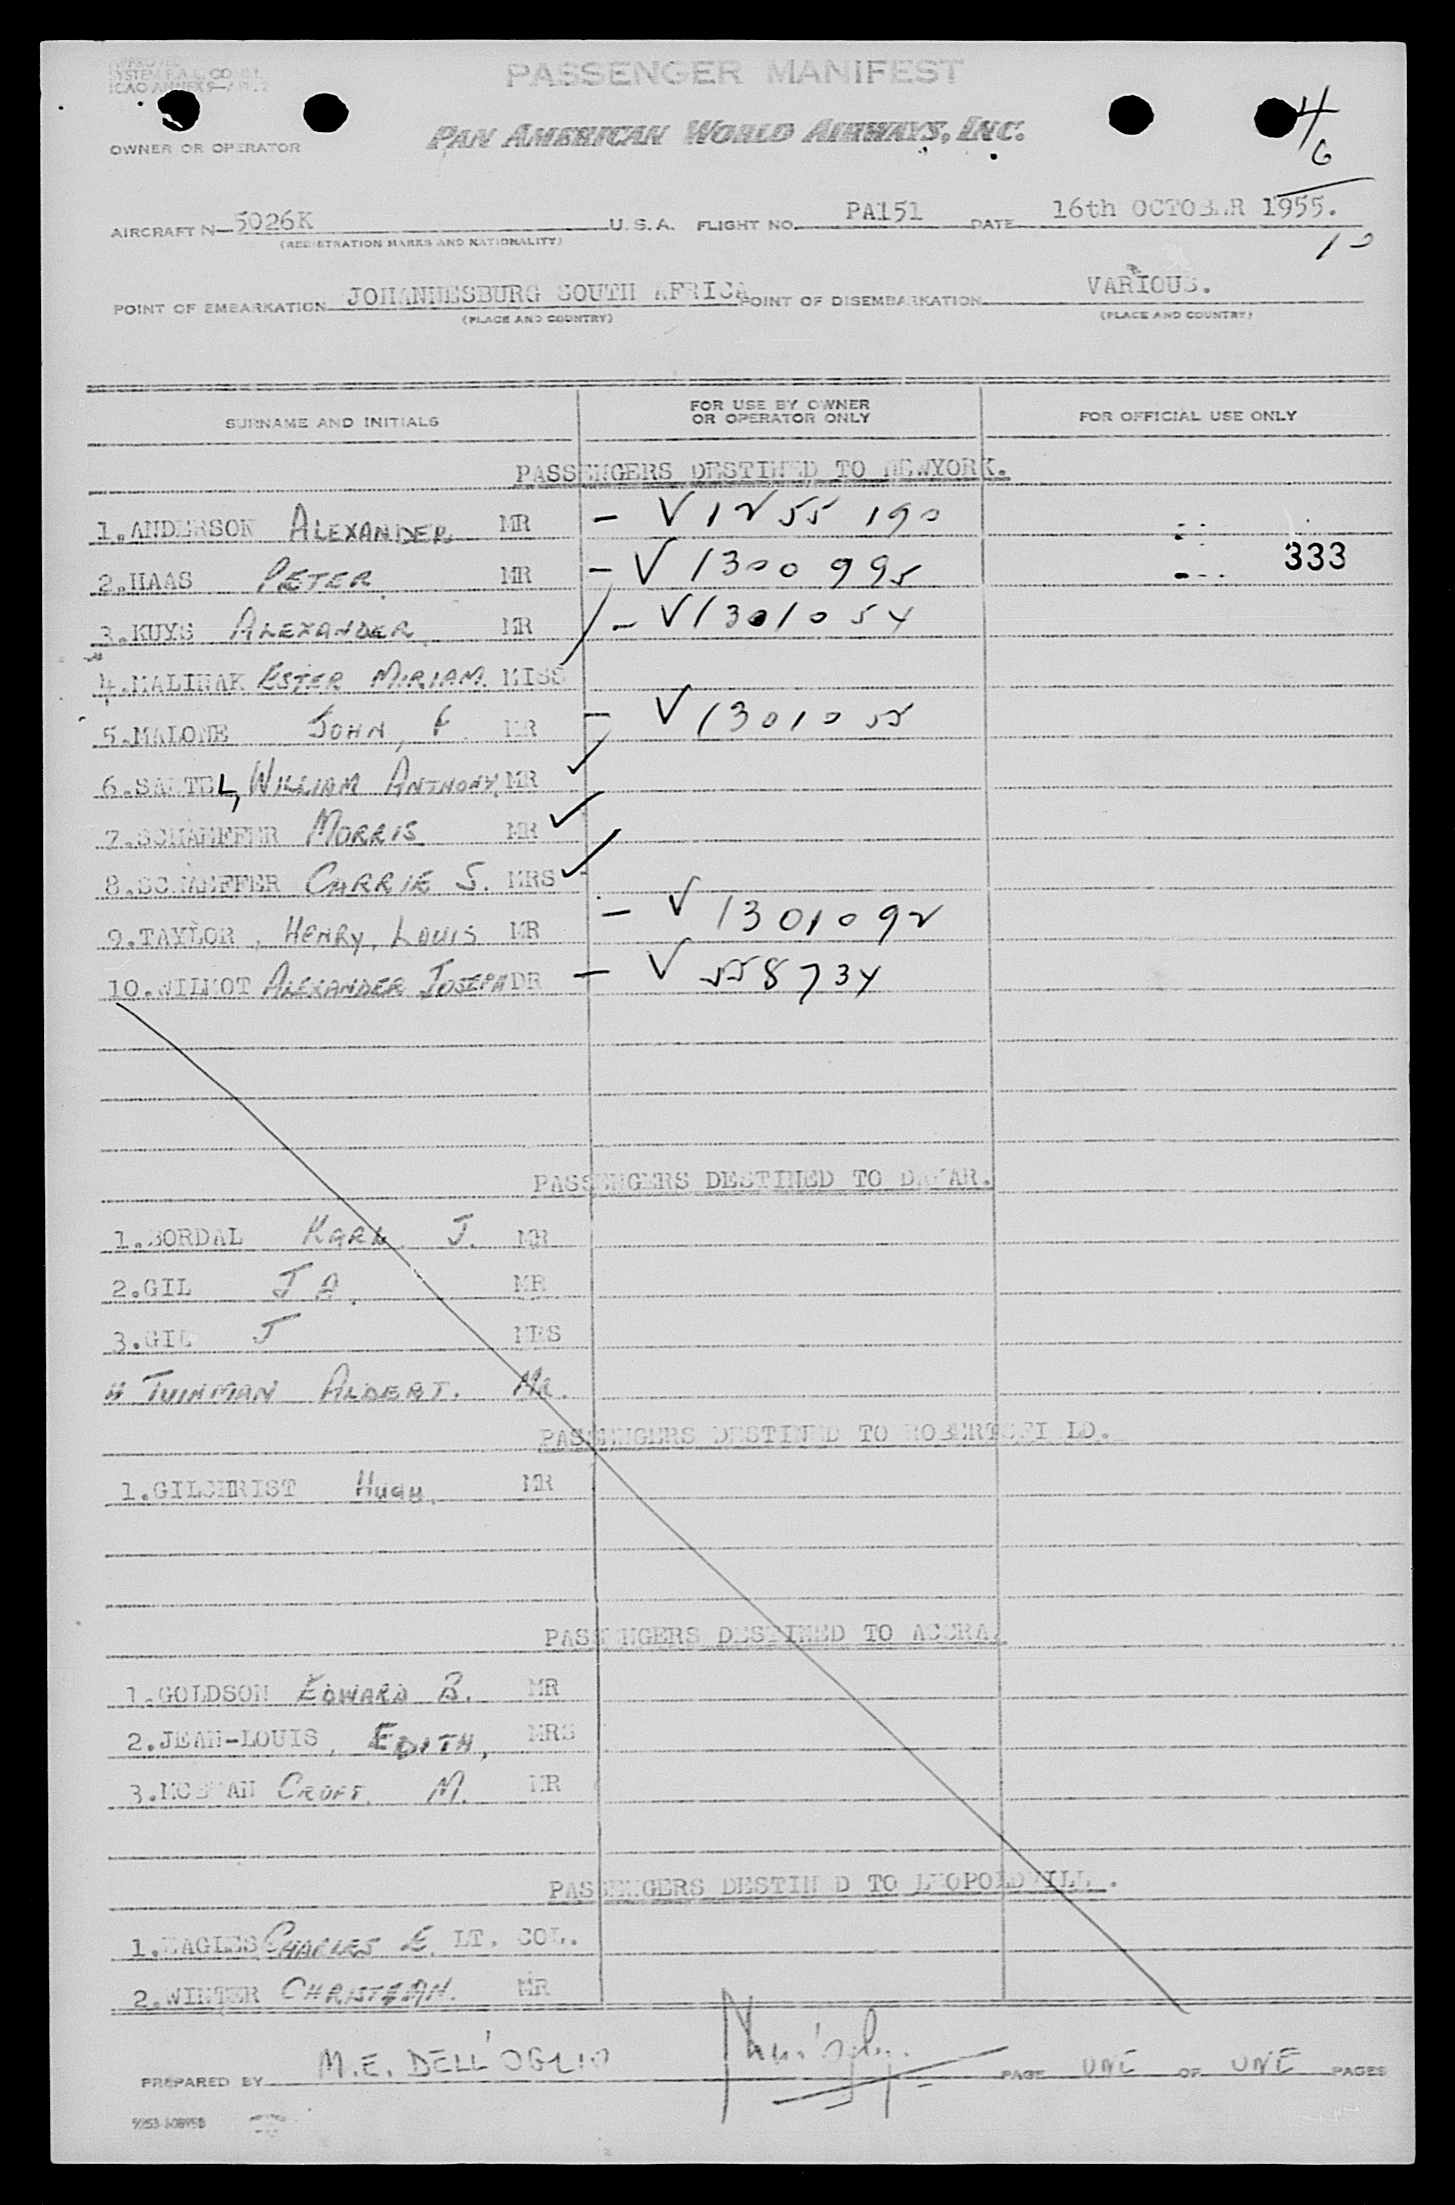 APPROVED
SYSTEM F.A.L. CO
ICAO ANNEX 9—
PASSENGER MANIFEST
PAN AMERICAN WORLD AIRWAYS, INC.
4/6
OWNER OR OPERATOR
AIRCRAFT N— 5026K U. S. A. FLIGHT NO. PA151 DATE 16th OCTOBER 1955.
(REGISTRATION MARKS AND NATIONALITY)
10
POINT OF EMBARKATION JOHANNESBURG SOUTH AFRICA POINT OF DISEMBARKATION VARIOUS.
(PLACE AND COUNTRY) (PLACE AND COUNTRY)
SURNAME AND INITIALS FOR USE BY OWNER OR OPERATOR ONLY FOR OFFICIAL USE ONLY
PASSENGERS DESTINED TO NEWYORK.
1.ANDERSON ALEXANDER MR — V1255 190
2.HAAS PETER MR — V 1300 995 333
3.KUYS ALEXANDER MR — V1301054
4.MALINAK ESTER MIRIAM. MISS
5.MALONE JOHN, F. MR — V1301055
6.SAUTEL, WILLIAM ANTHONY. MR ✓
7.SCHAEFFER MORRIS MR ✓
8.SCHAEFFER CARRIE S. MRS ✓
9.TAYLOR, HENRY, LOUIS MR — V 1301092
10.WILMOT ALEXANDER JOSEPH DR — V 558734
PASSENGERS DESTINED TO DAKAR.
1.BORDAL KARL J. MR
2.GIL J A. MR
3.GIL J MRS
4 TUINMAN ALBERT. MR.
PASSENGERS DESTINED TO ROBERTSFI LD.
1.GILCHRIST HUGH. MR
PASSENGERS DESTINED TO ACCRA.
1.GOLDSON EDWARD B. MR
2.JEAN-LOUIS, EDITH, MRS
3. CROFT. M. MR
PASSENGERS DESTIN D TO LEOPOLDVILL .
1.EAGLES CHARLES E. LT. COL.
2.WINTER CHRISTEAN. MR
PREPARED BY M.E. DELL'OGLIO PAGE ONE OF ONE PAGES